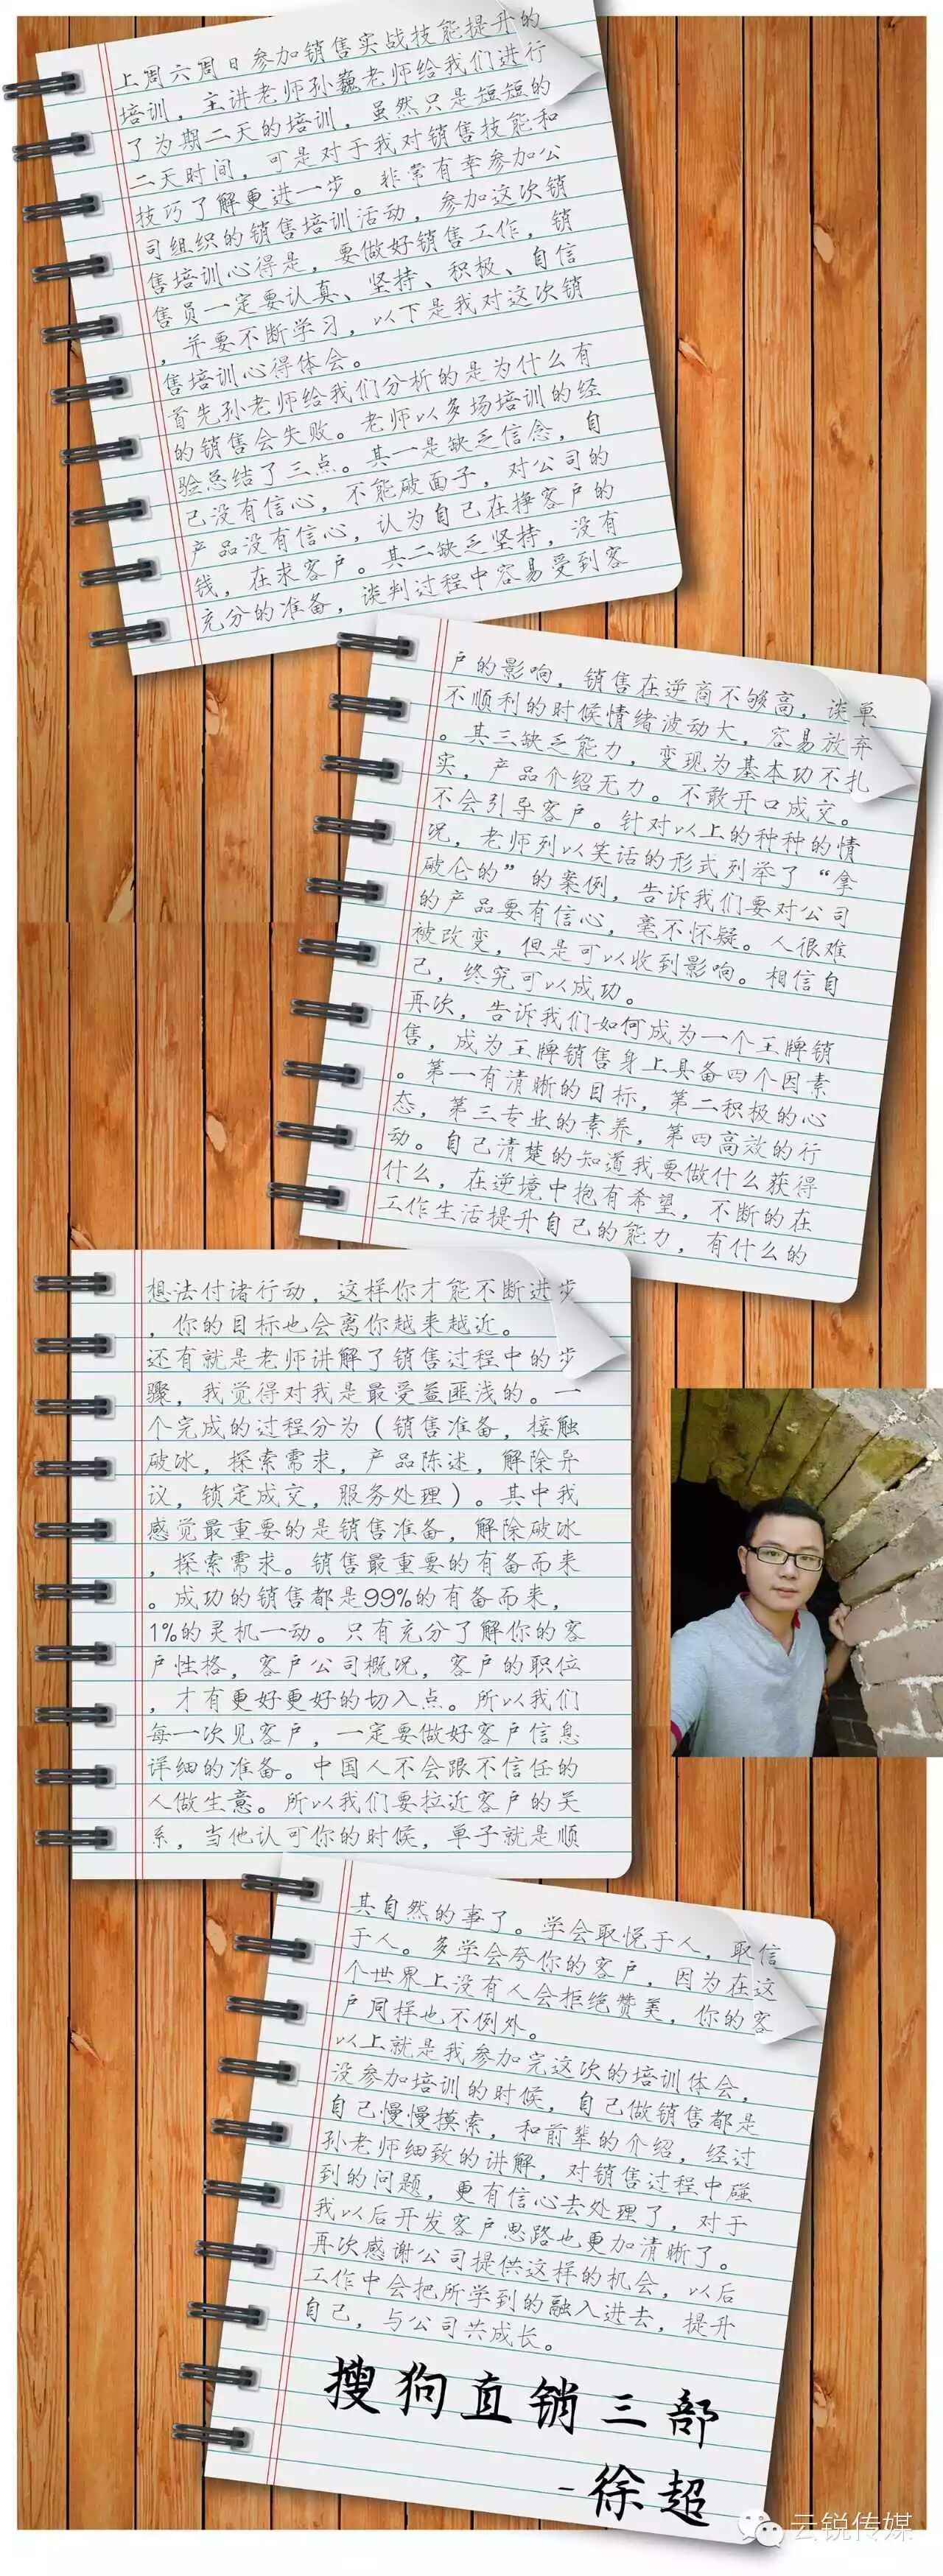 上周六周日参加销售实战技能提升的
培训，主讲老师孙巍老师给我们进行
了为期二天的培训，虽然只是短短的
二天时间，可是对于我对销售技能和
技巧了解更进一步。非常有幸参加公
司组织的销售培训活动，参加这次销
售培训心得是，要做好销售工作，销
售员一定要认真、坚持、积极、自信
，并要不断学习，以下是我对这次销
售培训心得体会。
首先孙老师给我们分析的是为什么有
的销售会失败。老师以多场培训的经
验总结了三点。其一是缺乏信念，自
己没有信心，不能破面子，对公司的
产品没有信心，认为自己在挣客户的
钱，在求客户。其二缺乏坚持，没有
充分的准备，谈判过程中容易受到客
户的影响，销售在逆商不够高，谈单
不顺利的时候情绪波动大，容易放弃
。其三缺乏能力，变现为基本功不扎
实，产品介绍无力。不敢开口成交。
不会引导客户。针对以上的种种的情
况，老师列以笑话的形式列举了“拿
破仑的”的案例，告诉我们要对公司
的产品要有信心，毫不怀疑。人很难
被改变，但是可以收到影响。相信自
己，终究可以成功。
再次，告诉我们如何成为一个王牌销
售，成为王牌销售身上具备四个因素
。第一有清晰的目标，第二积极的心
态，第三专业的素养，第四高效的行
动。自己清楚的知道我要做什么获得
什么，在逆境中抱有希望，不断的在
工作生活提升自己的能力，有什么的
想法付诸行动，这样你才能不断进步
，你的目标也会离你越来越近。
还有就是老师讲解了销售过程中的步
骤，我觉得对我是最受益匪浅的。一
个完成的过程分为（销售准备，接触
破冰，探索需求，产品陈述，解除异
议，锁定成交，服务处理）。其中我
感觉最重要的是销售准备，解除破冰
，探索需求。销售最重要的有备而来
。成功的销售都是99%的有备而来，
1%的灵机一动。只有充分了解你的客
户性格，客户公司概况，客户的职位
，才有更好更好的切入点。所以我们
每一次见客户，一定要做好客户信息
详细的准备。中国人不会跟不信任的
人做生意。所以我们要拉近客户的关
系，当他认可你的时候，单子就是顺
其自然的事了。学会取悦于人，取信
于人。多学会夸你的客户，因为在这
个世界上没有人会拒绝赞美，你的客
户同样也不例外。
以上就是我参加完这次的培训体会，
没参加培训的时候，自己做销售都是
自己慢慢摸索，和前辈的介绍，经过
孙老师细致的讲解，对销售过程中碰
到的问题，更有信心去处理了，对于
我以后开发客户思路也更加清晰了。
再次感谢公司提供这样的机会，以后
工作中会把所学到的融入进去，提升
自己，与公司共成长。
搜狗直销三部
-徐超
云锐传媒